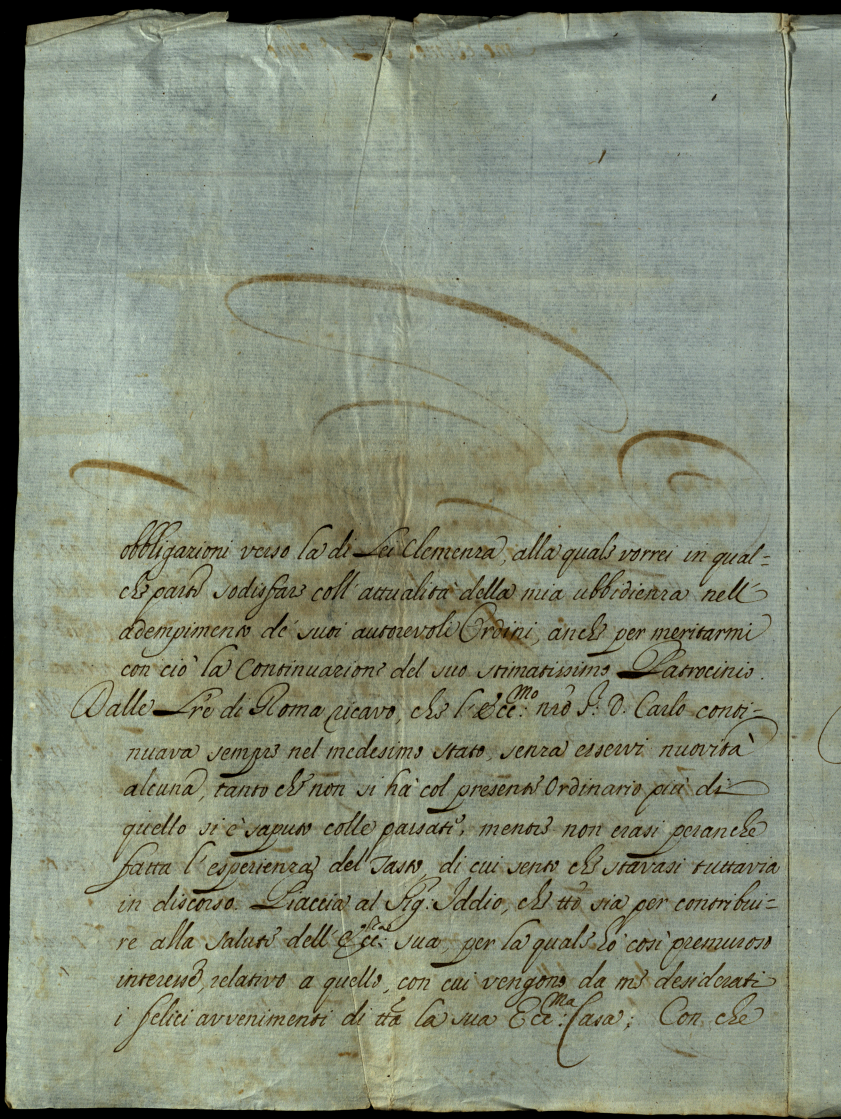 obbligazioni verso la di Lei Clemenza, alla quale vorrei in qual=
che parte sodisfare coll'attualità della mia ubbidienza nell'
adempimento de' suoi autorevoli Ordini, anche per meritarmi
con ciò la Continuazione del suo stimatissimo Patrocinio.
Dalle Lre di Roma ricavo, che l'Ecc:mo nro P: D. Carlo conti-
nuava sempre nel medesimo stato, senza esservi nuovità
alcuna, tanto che non si hà col presente Ordinario più di
quello si è saputo colle passate, mentre non erasi peranche
fatta l'esperienza del Tasto, di cui sento che stavasi tuttavia
in discorso. Piaccia al Sig: Iddio, che tto sia per contribui=
re alla salute dell' sua, per la quale hò così premuroso
interesse, relativo a quello, con cui vengono da me desiderati
i felici avvenimenti di tta la sua Ecc:ma Casa; Con che